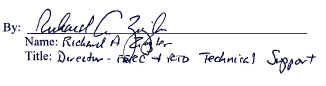 By: Richard A. Zigler
Name: Richard A. Zigler
Title: Director - & R&D Technical Support